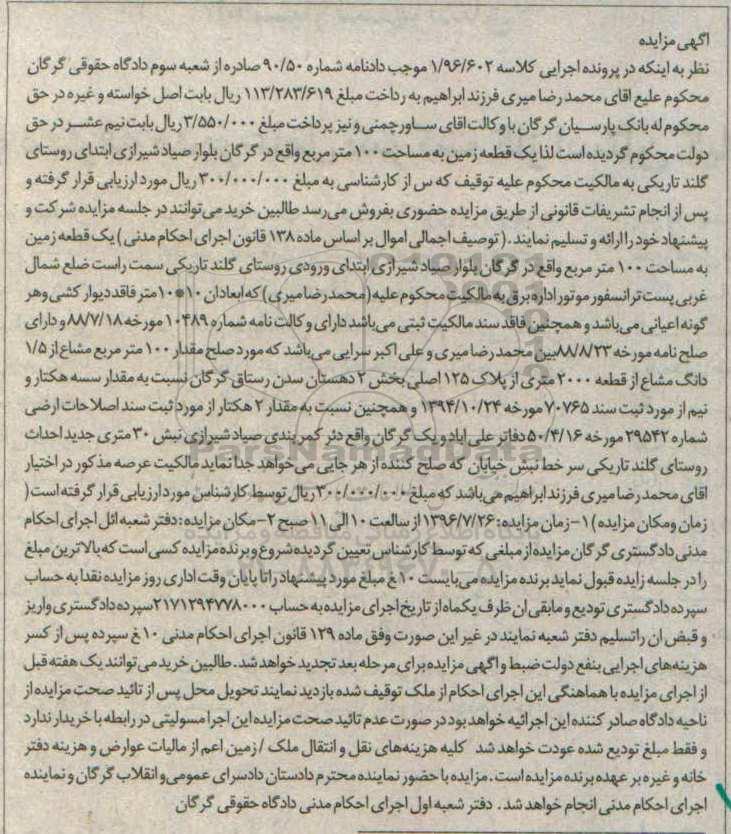 آگهی مزایده
نظر به اینکه در پرونده اجرایی کلاسه ۱/۹۶/۶۰۲ موجب دادنامه شماره ۹۰/۵۰ صادره از شعبه سوم دادگاه حقوقی گرگان
محکوم علیع اقای محمد رضا میری فرزند ابراهیم به رداخت مبلغ ۱۱۳/۲۸۳/۶۱۹ ریال بابت اصل خواسته و غیره در حق
محکوم له بانک پارسیان گرگان با وکالت اقای ساورچمنی و نیز پرداخت مبلغ ۳/۵۵۰/۰۰۰ ریال بابت نیم عشر در حق
دولت محکوم گردیده است لذا یک قطعه زمین به مساحت ۱۰۰ متر مربع واقع در گرگان بلوار صیاد شیرازی ابتدای روستای
گلند تاریکی به مالکیت محکوم علیه توقیف که س از کارشناسی به مبلغ ۳۰۰/۰۰۰/۰۰۰ ریال مورد ارزیابی قرار گرفته و
پس از انجام تشریفات قانونی از طریق مزایده حضوری بفروش می‌رسد طالبین خرید می‌توانند در جلسه مزایده شرکت و
پیشنهاد خود را ارائه و تسلیم نمایند . ( توصیف اجمالی اموال بر اساس ماده ۱۳۸ قانون اجرای احکام مدنی ) یک قطعه زمین
به مساحت ۱۰۰ متر مربع واقع در گرگان بلوار صیاد شیرازی ابتدای ورودی روستای گلند تاریکی سمت راست ضلع شمال
غربی پست ترانسفور موتور اداره برق به مالکیت محکوم علیه ( محمد رضا میری ) که ابعادان ۱۰*۱۰ متر فاقد دیوار کشی وهر
گونه اعیانی می‌باشد و همچنین فاقد سند مالکیت ثبتی می‌باشد دارای و کالت نامه شماره ۱۰۴۸۹ مورخه ۸۸/۷/۱۸ و دارای
صلح نامه مورخه ۸۸/۸/۲۳ بین محمد رضا میری و علی اکبر سرایی می‌باشد که مورد صلح مقدار ۱۰۰ متر مربع مشاع از ۱/۵
دانگ مشاع از قطعه ۲۰۰۰ متری از پلاک ۱۲۵ اصلی بخش ۲ دهستان سدن رستاق گرگان نسبت به مقدار سسه هکتار و
نیم از مورد ثبت سند ۷۰۷۶۵ مورخه ۱۳۹۴/۱۰/۲۴ و همچنین نسبت به مقدار ۲ هکتار از مورد ثبت سند اصلاحات ارضی
شماره ۲۹۵۴۲ مورخه ۵۰/۴/۱۶ دفاتر علی اباد و یک گرگان واقع دئر کمربندی صیاد شیرازی نبش ۳۰ متری جدید احداث
روستای گلند تاریکی سر خط نبش خیابان که صلح کننده از هر جایی می‌خواهد جدا نماید مالکیت عرصه مذکور در اختیار
اقای محمد رضا میری فرزند ابراهیم می‌باشد که مبلغ ۳۰۰/۰۰۰/۰۰۰ ریال توسط کارشناس مورد ارزیابی قرار گرفته است (
زمان ومکان مزایده ) ۱- زمان مزایده : ۱۳۹۶/۷/۲۶ از سالعت ۱۰ الی ۱۱ صبح ۲- مکان مزایده : دفتر شعبه ائل اجرای احکام
مدنی دادگستری گرگان مزایده از مبلغی که توسط کارشناس تعیین گردیده شروع و برنده مزایده کسی است که بالاترین مبلغ
را در جلسه زایده قبول نماید برنده مزایده می‌بایست ۱۰ غ مبلغ مورد پیشنهاد را تا پایان وقت اداری روز مزایده نقدا به حساب
سپرده دادگستری تودیع و مابقی ان ظرف یکماه از تاریخ اجرای مزایده به حساب ۲۱۷۱۲۹۴۷۷۸۰۰۰ سپرده دادگستری واریز
و قبض ان را تسلیم دفتر شعبه نمایند در غیر این صورت وفق ماده ۱۲۹ قانون اجرای احکام مدنی ۱۰ غ سپرده پس از کسر
هزینه‌های اجرایی بنفع دولت ضبط و اگهی مزایده برای مرحله بعد تجدید خواهد شد . طالبین خرید می‌توانند یک هفته قبل
از اجرای مزایده با هماهنگی این اجرای احکام از ملک توقیف شده بازدید نمایند تحویل محل پس از تائید صحت مزایده از
ناحیه دادگاه صادر کننده این اجرائیه خواهد بود در صورت عدم تائید صحت مزایده این اجرا مسولیتی در رابطه با خریدار ندارد
و فقط مبلغ تودیع شده عودت خواهد شد کلیه هزینه‌های نقل و انتقال ملک / زمین اعم از مالیات عوارض و هزینه دفتر
خانه و غیره بر عهده برنده مزایده است . مزایده با حضور نماینده محترم دادستان دادسرای عمومی و انقلاب گرگان و نماینده
اجرای احکام مدنی انجام خواهد شد . دفتر شعبه اول اجرای احکام مدنی دادگاه حقوقی گرگان
ParsNamadData